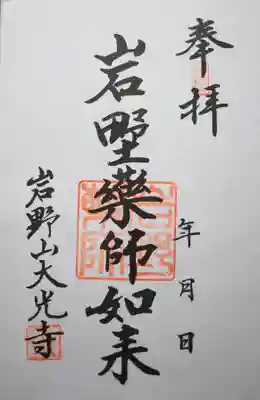 奉拝
年月日
岩埜藥師如来
岩野山大光寺